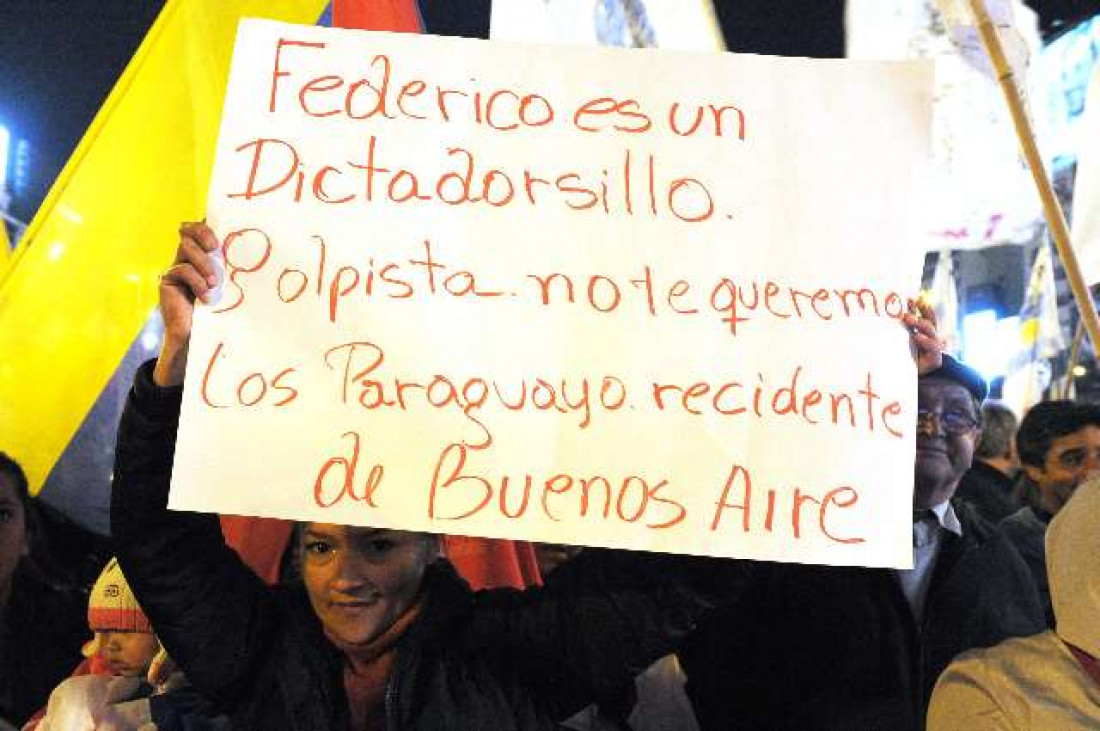 Federico es un
Dictadorsillo.
golpista. no te queremo
Los Paraguayo. recidente
de Buenos Aire